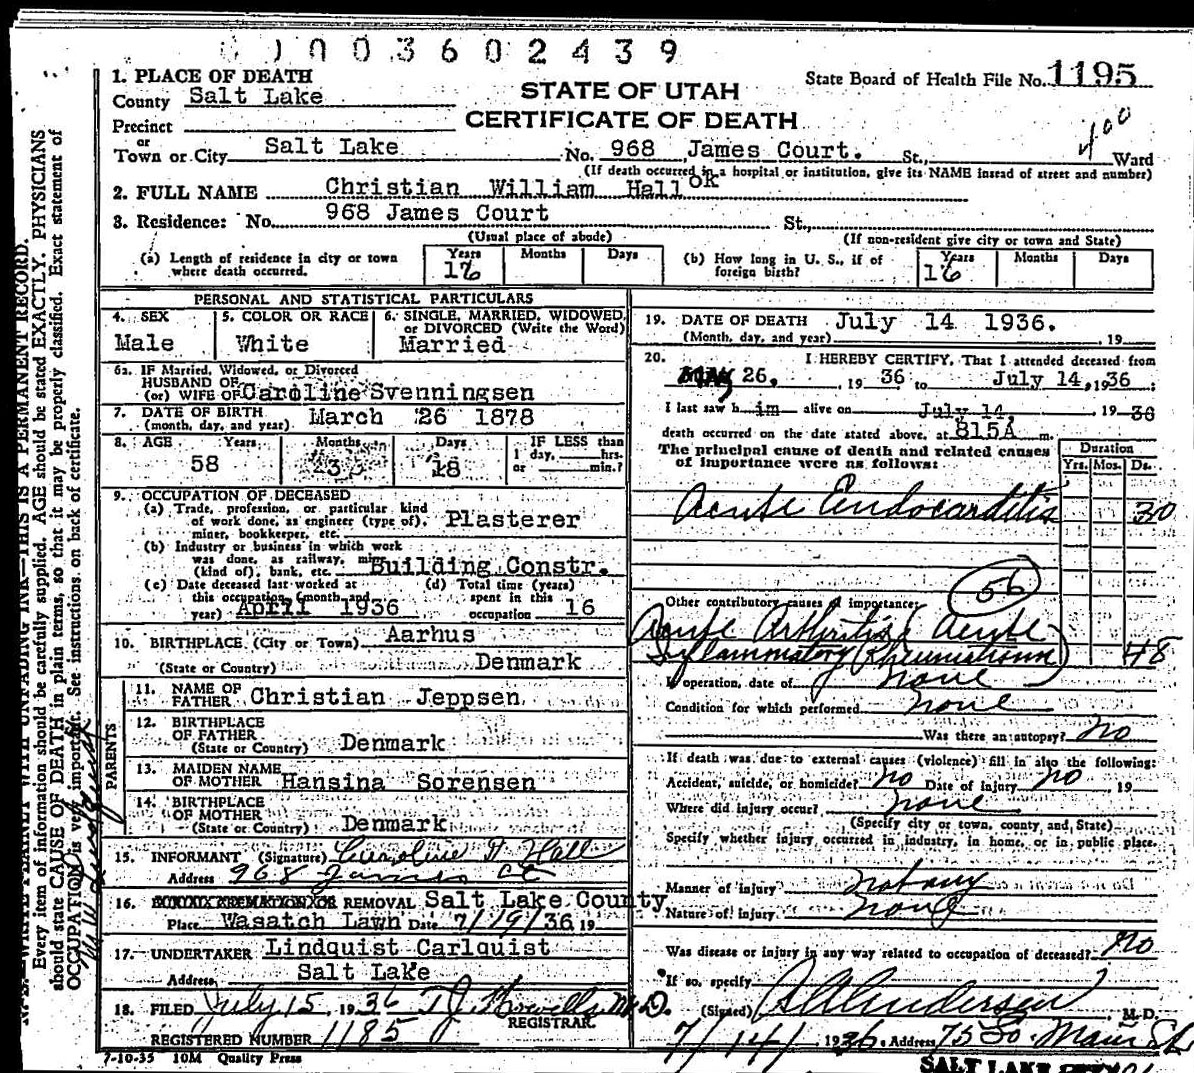 0 0 0 3 6 0 2 4 3 9
STATE OF UTAH
CERTIFICATE OF DEATH
State Board of Health File No. 1195
400
1. PLACE OF DEATH
County Salt Lake
Precinct
or
Town or City Salt Lake No. 968 James Court. St., Ward
(If death occurred in a hospital or institution, give its NAME instead of street and number)
2. FULL NAME Christian William Hall OK
3. Residence: No. 968 James Court St.,
(Usual place of abode) (If non-resident give city or town and State)
(a) Length of residence in city or town where death occurred. Years 16 Months Days
(b) How long in U. S., if of foreign birth? Years 16 Months Days
PERSONAL AND STATISTICAL PARTICULARS
4. SEX Male
5. COLOR OR RACE White
6. SINGLE, MARRIED, WIDOWED, or DIVORCED (Write the Word) Married
6a. IF Married, Widowed, or Divorced
HUSBAND OF
(or) WIFE OF Caroline Svenningsen
7. DATE OF BIRTH (month, day, and year) March 26 1878
8. AGE Years 58 Months 3 Days 18 IF LESS than 1 day, hrs. or min.?
9. OCCUPATION OF DECEASED
(a) Trade, profession, or particular kind of work done, as engineer (type of), miner, bookkeeper, etc. Plasterer
(b) Industry or business in which work was done, as railway, mine (kind of), bank, etc. Building Constr.
(c) Date deceased last worked at this occupation (month and year) April 1936
(d) Total time (years) spent in this occupation 16
10. BIRTHPLACE (City or Town) Aarhus
(State or Country) Denmark
PARENTS
11. NAME OF FATHER Christian Jeppsen
12. BIRTHPLACE OF FATHER (State or Country) Denmark
13. MAIDEN NAME OF MOTHER Hansina Sorensen
14. BIRTHPLACE OF MOTHER (State or Country) Denmark
15. INFORMANT (Signature) Caroline H Hall
Address 968 James Ct
16. REMOVAL Salt Lake County
Place Wasatch Lawn Date 7/19/36 19
17. UNDERTAKER Lindquist Carlquist
Address Salt Lake
18. FILED July 15, 1936 T J Howells M. D.
REGISTRAR.
REGISTERED NUMBER 1185
7-10-35 10M Quality Press
19. DATE OF DEATH July 14 1936.
(Month, day, and year) , 19
20. I HEREBY CERTIFY, That I attended deceased from
May 26, , 19 36 to July 14, 19 36 ;
I last saw h im alive on July 14, , 19 36
death occurred on the date stated above, at 815A m.
The principal cause of death and related causes of importance were as follows:
Duration
Yrs. Mos. Ds.
Acute Endocarditis 30
56
Other contributory causes of importance:
Acute Arthritis (Acute
Inflammatory Rheumatism) 48
If operation, date of none
Condition for which performed none
Was there an autopsy? No
If death was due to external causes (violence) fill in also the following:
Accident, suicide, or homicide? no Date of injury no , 19
Where did injury occur? none
(Specify city or town, county and State)
Specify whether injury occurred in industry, in home, or in public place.
Manner of injury not any
Nature of injury none
Was disease or injury in any way related to occupation of deceased? no
If so, specify
(Signed) Andersen , M. D.
7/14/ 1936. Address 75 So. Main St
SALT LAKE CITY
N. B.—WRITE PLAINLY, WITH UNFADING INK—THIS IS A PERMANENT RECORD.
Every item of information should be carefully supplied. AGE should be stated EXACTLY. PHYSICIANS
should state CAUSE OF DEATH in plain terms, so that it may be properly classified. Exact statement of
OCCUPATION is very important. See instructions on back of certificate.